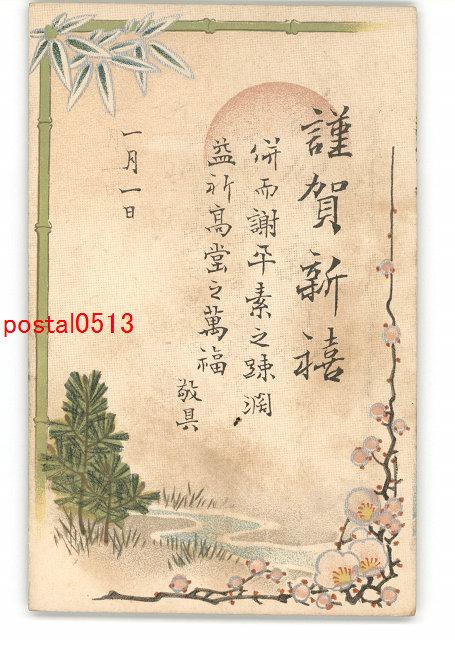 謹賀新禧
併而謝平素之疎濶
益祈高堂之萬福
敬具
一月一日
postal0513